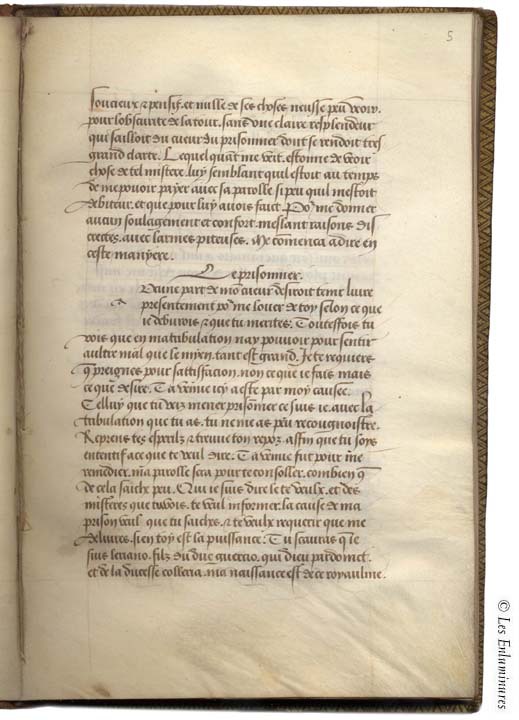 5
soucieux & pensif. et nulle de ses choses neusse peu veoir.
pour lobscurite de la tour. sans une claire resplendeur
qui sailloit du cueur du prisonnier dont se rendoit tres
grand clarte. Lequel quant me veit. estonne de veoir
chose de tel mistere. luy semblant quil estoit au temps
de me pouoir payer avec sa parolle si peu quil mestoit
debiteur. et que pour luy avois faict. Por me donner
aucun soulagement et confort. meslant raisons dis
crectes. avec larmes piteuses. Me comenca a dire en
ceste manyere.
Le prisonnier.
Dune part de mo cueur desiroit tenir livre
presentement por me louer de toy selon ce que
ie debvrois & que tu merites. Touteffois tu
vois que en ma tribulation nay pouvoir pour sentir
aultre mal que le myen. tant est grand. Je te requiere
q preignes pour sattisfacion. non ce que ie fais mais
ce que desire. Ta venue icy a este par moy causee.
Celluy que tu veiz mener prisonnier ce suis ie. avec la
tribulation que tu as. tu ne me as peu recougnoistre.
Reprens tes esperilz & treuve ton repoz. affin que tu soys
ententif a ce que te veul dire. Ta venue fut pour me
remedier. ma parolle sera pour te consoller. combien q
de cela saiche peu. Qui ie suis dire le te veulx. et des
misteres que tu vois. te veul informer. la cause de ma
prison veul que tu saiches. & te veulx requerir que me
delivres. si en toy est la puissance. Tu scauras q ie
suis leriano. filz du duc guersio. qui dieu pardoint.
et de la ducesse colleria. ma naissance est de ce royaulme.
© Les Enluminures